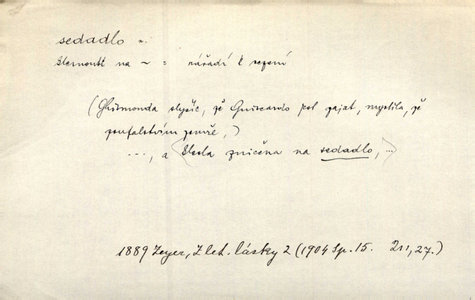 sedadlo n.
klesnouti na ~ = nářadí k sezení
(Ghismonda slyšíc, že Guiscardo jest zajat, myslila, že
zoufalstvím zemře,)
..., a klesla zničena na sedadlo, ...
1889 Zeyer, Z let. lásky 2 (1904 Sp. 15. 211, 27.)